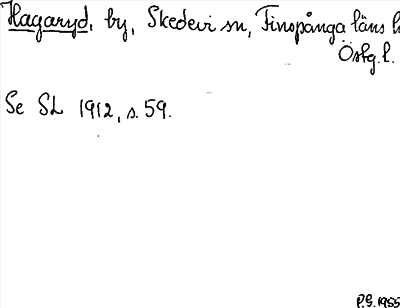 Hagaryd. by, Skedevi sn, Finspånga läns h
Östg.l.
Se SL 1912, s. 59.
P.G. 1955